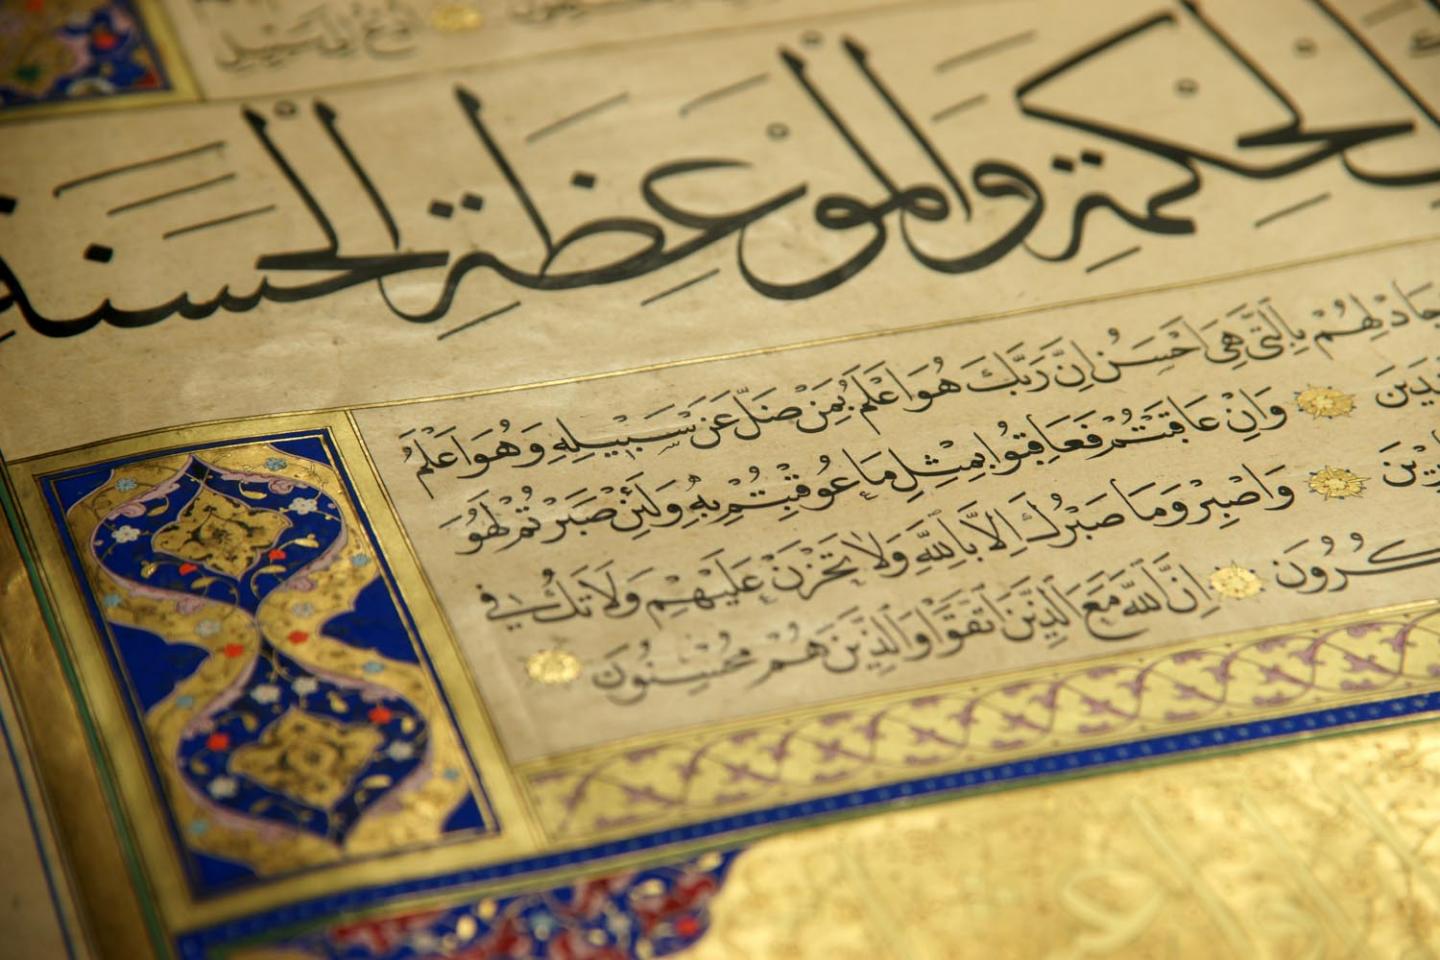 ابن السبيل
الحكمة والموعظة الحسنة
جادلهم بالتي هي احسن ان ربك هو اعلم بمن ضل عن سبيله وهو اعلم
وان عاقبتم فعاقبوا بمثل ما عوقبتم به ولئن صبرتم لهو
واصبر وما صبرك الا بالله ولا تحزن عليهم ولا تك في
يمكرون ان الله مع الذين اتقوا والذين هم محسنون